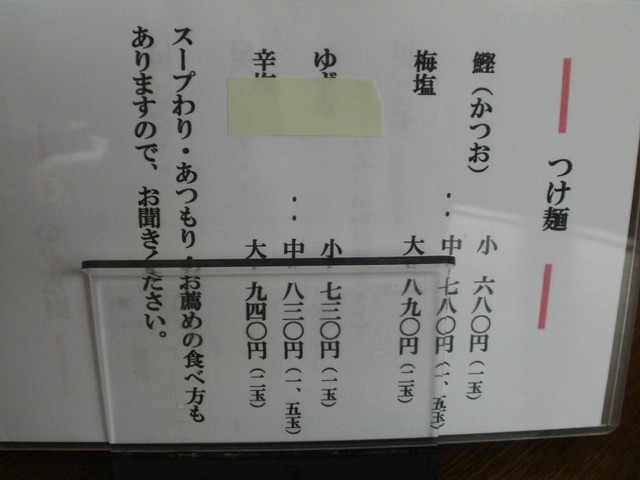 つけ麺
鰹(かつお) 小 六八〇円(一玉)
：中 七八〇円(一、五玉)
梅塩 大 八九〇円(二玉)
ゆず 小 七三〇円(一玉)
：中 八三〇円(一、五玉)
辛塩 大 九四〇円(二玉)
スープわり・あつもり・お薦めの食べ方も
ありますので、お聞きください。